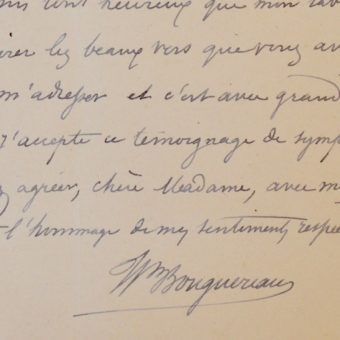 suis bien heureux que mon tab
irer les beaux vers que vous av
m'adresser et c'est avec grand
j'accepte ce témoignage de symp
agréer, chère Madame, avec m
l'hommage de mes sentiments respec
Wm Bouguereau